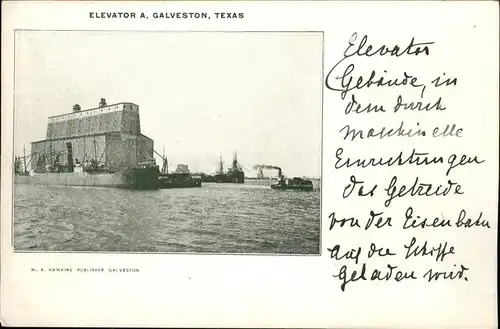 ELEVATOR A, GALVESTON, TEXAS
Elevator
Gebäude, in
dem durch
Maschinelle
Einrichtungen
das Getreide
von der Eisenbahn
auf die Schiffe
geladen wird.
M. A. HAWKINS PUBLISHER GALVESTON